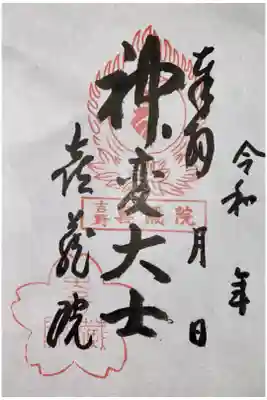 令和 年
奉拝 月 日
神変大士
喜蔵院
吉野 喜藏院